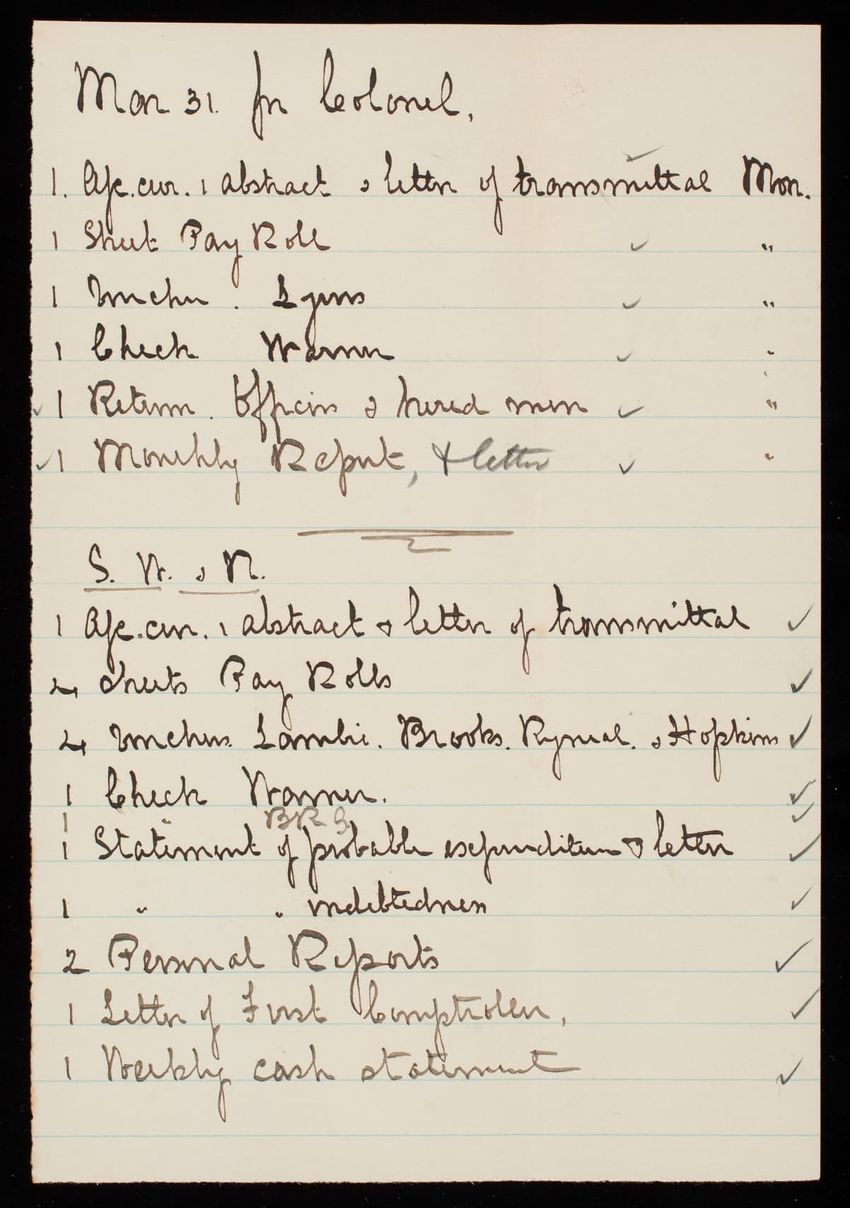 Mar 31. for Colonel,
1. A/c. cur. , abstract & letter of transmittal ✓ Mon.
1 Sheet Pay Roll ✓ "
1 Voucher . Lyons ✓ "
1 Check Warner ✓ "
✓ 1 Return . Officers & hired men ✓ "
✓ 1 Monthly Report, & letter ✓ "
S. W. & N.
1 A/c. cur. , abstract & letter of transmittal ✓
4 sheets Pay Rolls ✓
4 vouchers. Lambie. Brooks. Ryneal. & Hopkins ✓
1 Check Warner. ✓
1 " BRG ✓
1 Statement of probable expenditure & letter ✓
1 " " indebtedness ✓
2 Personal Reports ✓
1 Letter of First Comptroller, ✓
1 Weekly cash statement ✓